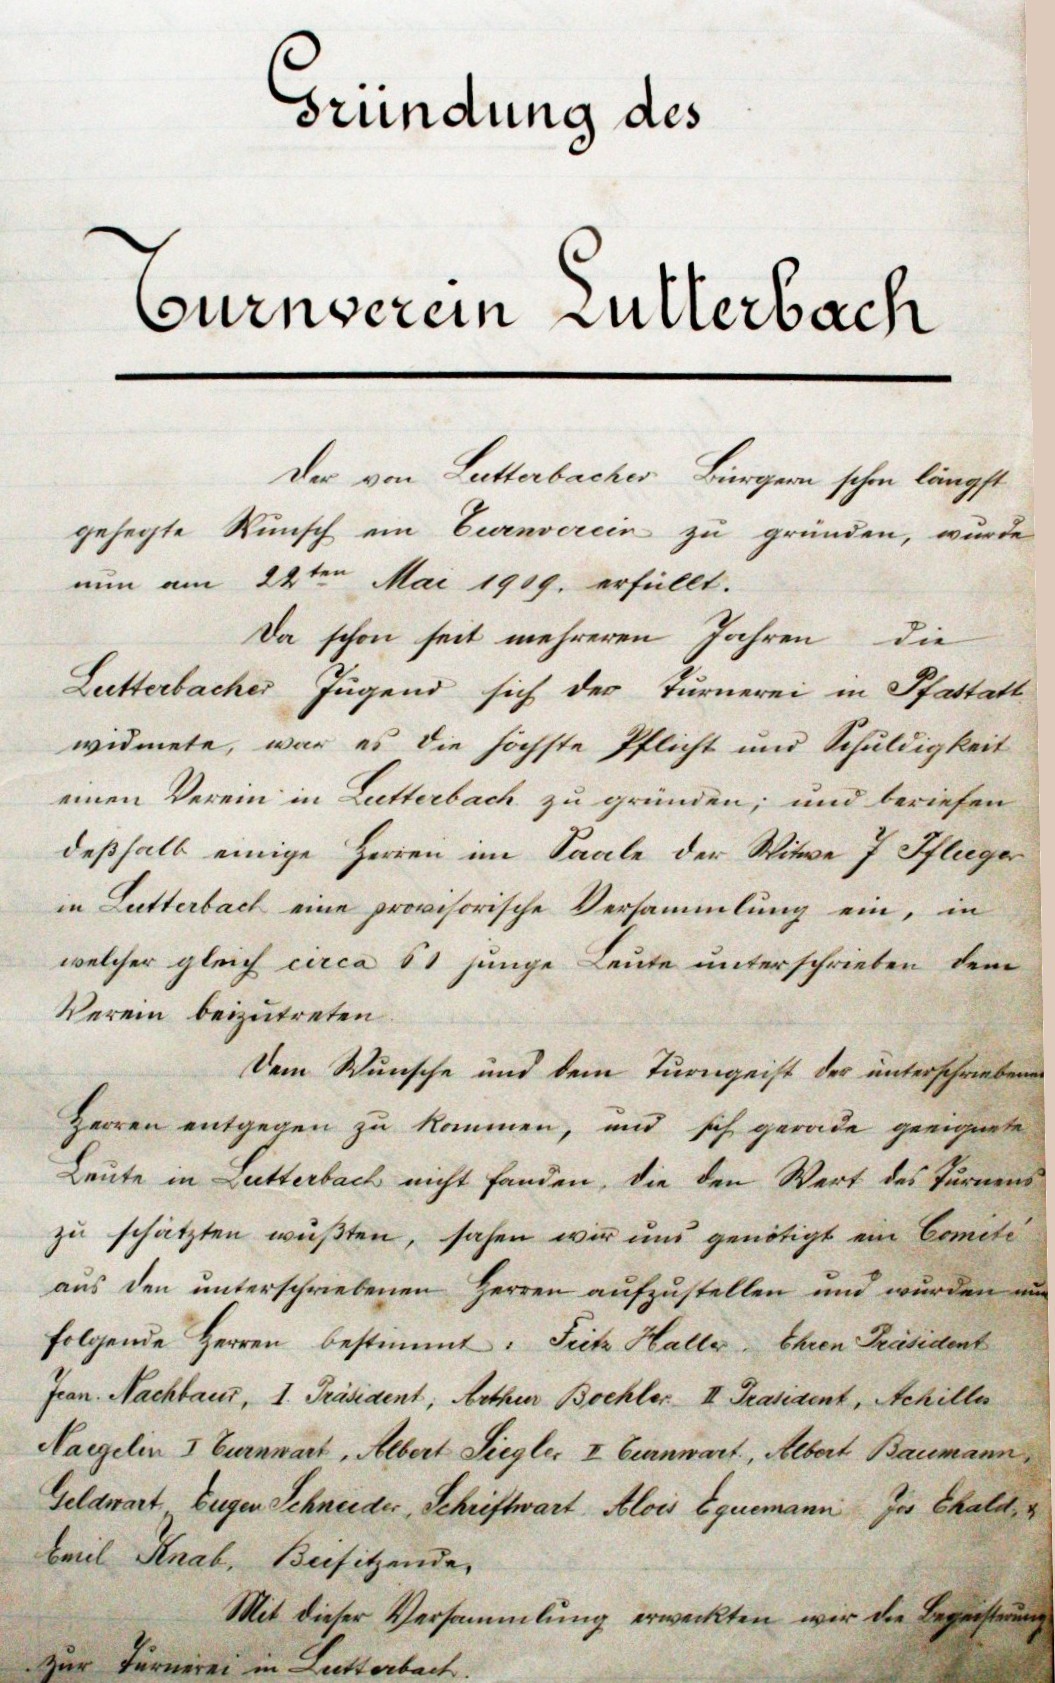 Gründung des
Turnverein Lutterbach
Der von Lutterbacher Bürgern schon längst
gehegte Wunsch ein Turnverein zu gründen, wurde
nun am 22ten Mai 1909. erfüllt.
Da schon seit mehreren Jahren die
Lutterbacher Jugend sich der Turnerei in Pfastatt
widmete, war es die höchste Pflicht und Schuldigkeit
einen Verein in Lutterbach zu gründen; und beriefen
deßhalb einige Herren im Saale der Witwe J Pflieger
in Lutterbach eine provisorische Versammlung ein, in
welcher gleich circa 61 junge Leute unterschrieben dem
Verein beizutreten.
Dem Wunsche und dem Turngeist der unterschriebenen
Herren entgegen zu kommen, und sich gerade geeignete
Leute in Lutterbach nicht fanden, die den Wert des Turnens
zu schätzten wußten, sahen wir uns genötigt ein Comité
aus den unterschriebenen Herren aufzustellen und wurden nun
folgende Herren bestimmt: Fritz Haller. Ehren Präsident
Jean. Nachbaur, I. Präsident, Arthur Boehler II Präsident, Achilles
Naegelin I Turnwart, Albert Siegler II Turnwart, Albert Baumann,
Geldwart, Eugen Schneider, Schriftwart Alois Equemann Jos Ehald, &
Emil Knab, Beisitzende,
Mit dieser Versammlung erweckten wir die Begeisterung
zur Turnerei in Lutterbach.